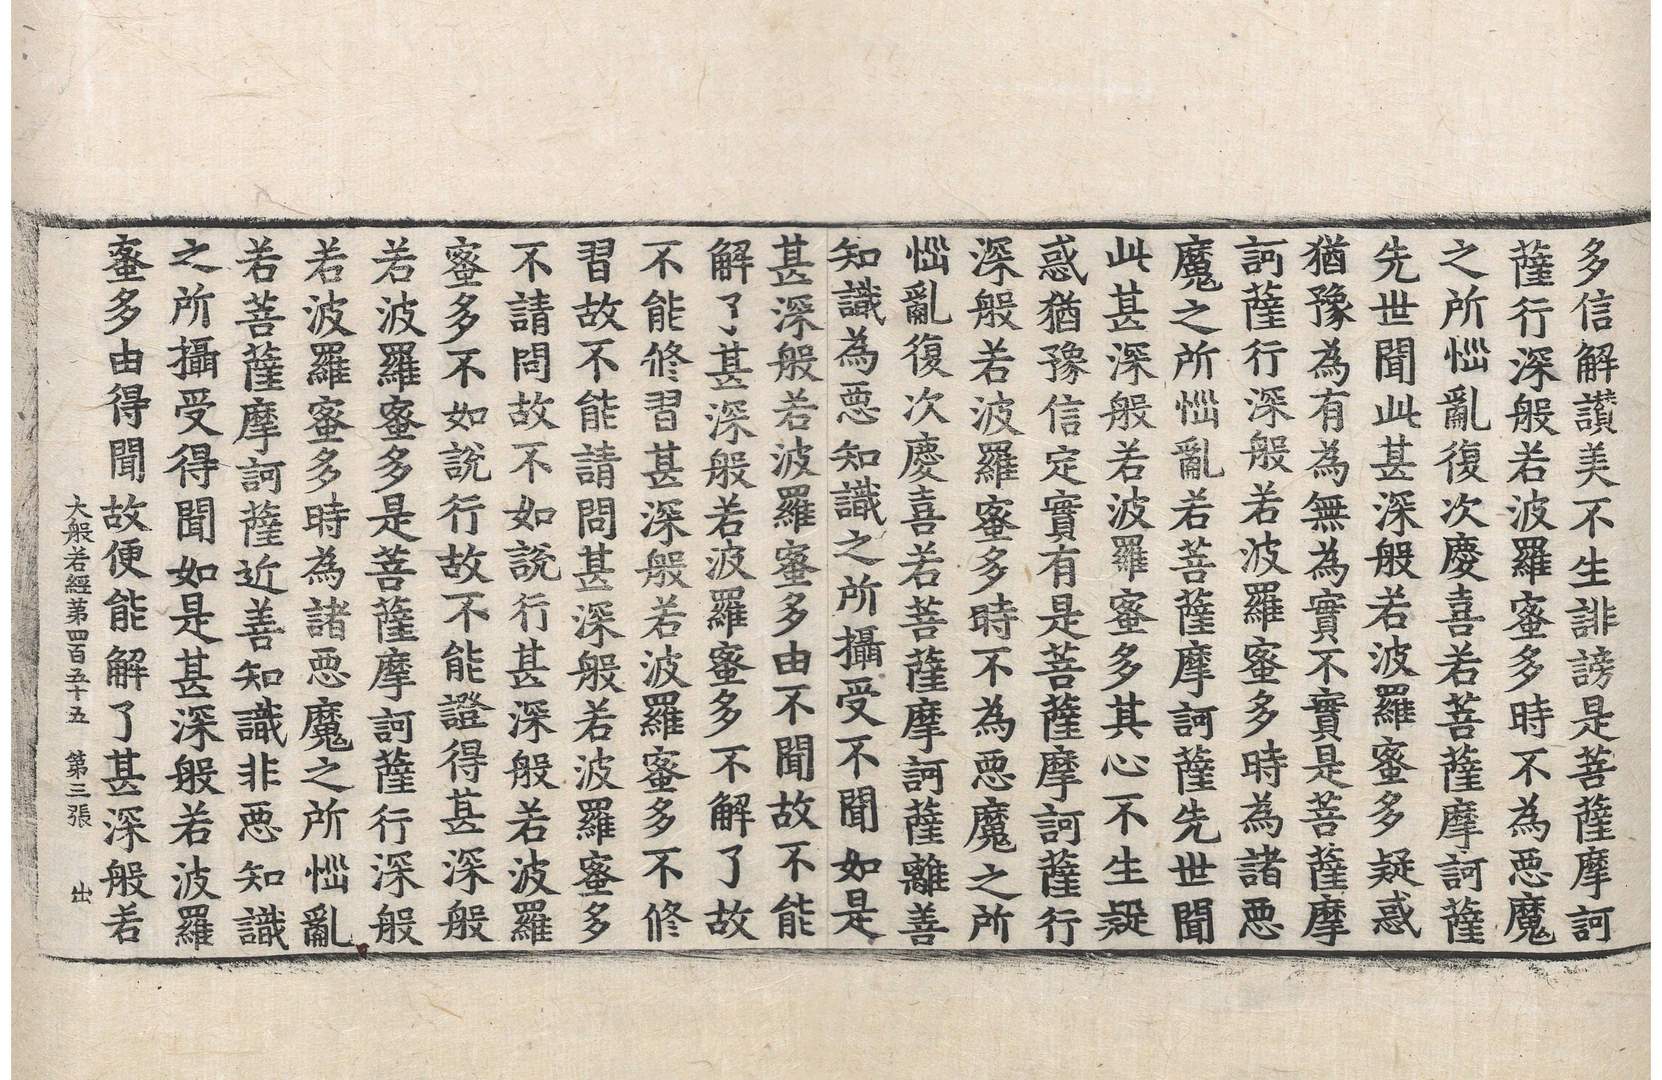 多信解讃美不生誹謗是菩薩摩訶
薩行深般若波羅蜜多時不為悪魔
之所惱亂復次慶喜若菩薩摩訶薩
先世聞此甚深般若波羅蜜多疑惑
猶豫為有為無為實不實是菩薩摩
訶薩行深般若波羅蜜多時為諸悪
魔之所惱亂若菩薩摩訶薩先世聞
此甚深般若波羅蜜多其心不生疑
惑猶豫信定實有是菩薩摩訶薩行
深般若波羅蜜多時不為悪魔之所
惱亂復次慶喜若菩薩摩訶薩離善
知識為悪知識之所攝受不聞如是
甚深般若波羅蜜多由不聞故不能
解了甚深般若波羅蜜多不解了故
不能修習甚深般若波羅蜜多不修
習故不能請問甚深般若波羅蜜多
不請問故不如說行甚深般若波羅
蜜多不如說行故不能證得甚深般
若波羅蜜多是菩薩摩訶薩行深般
若波羅蜜多時為諸悪魔之所惱亂
若菩薩摩訶薩近善知識非悪知識
之所攝受得聞如是甚深般若波羅
蜜多由得聞故便能解了甚深般若
大般若經第四百五十五 第三張 出